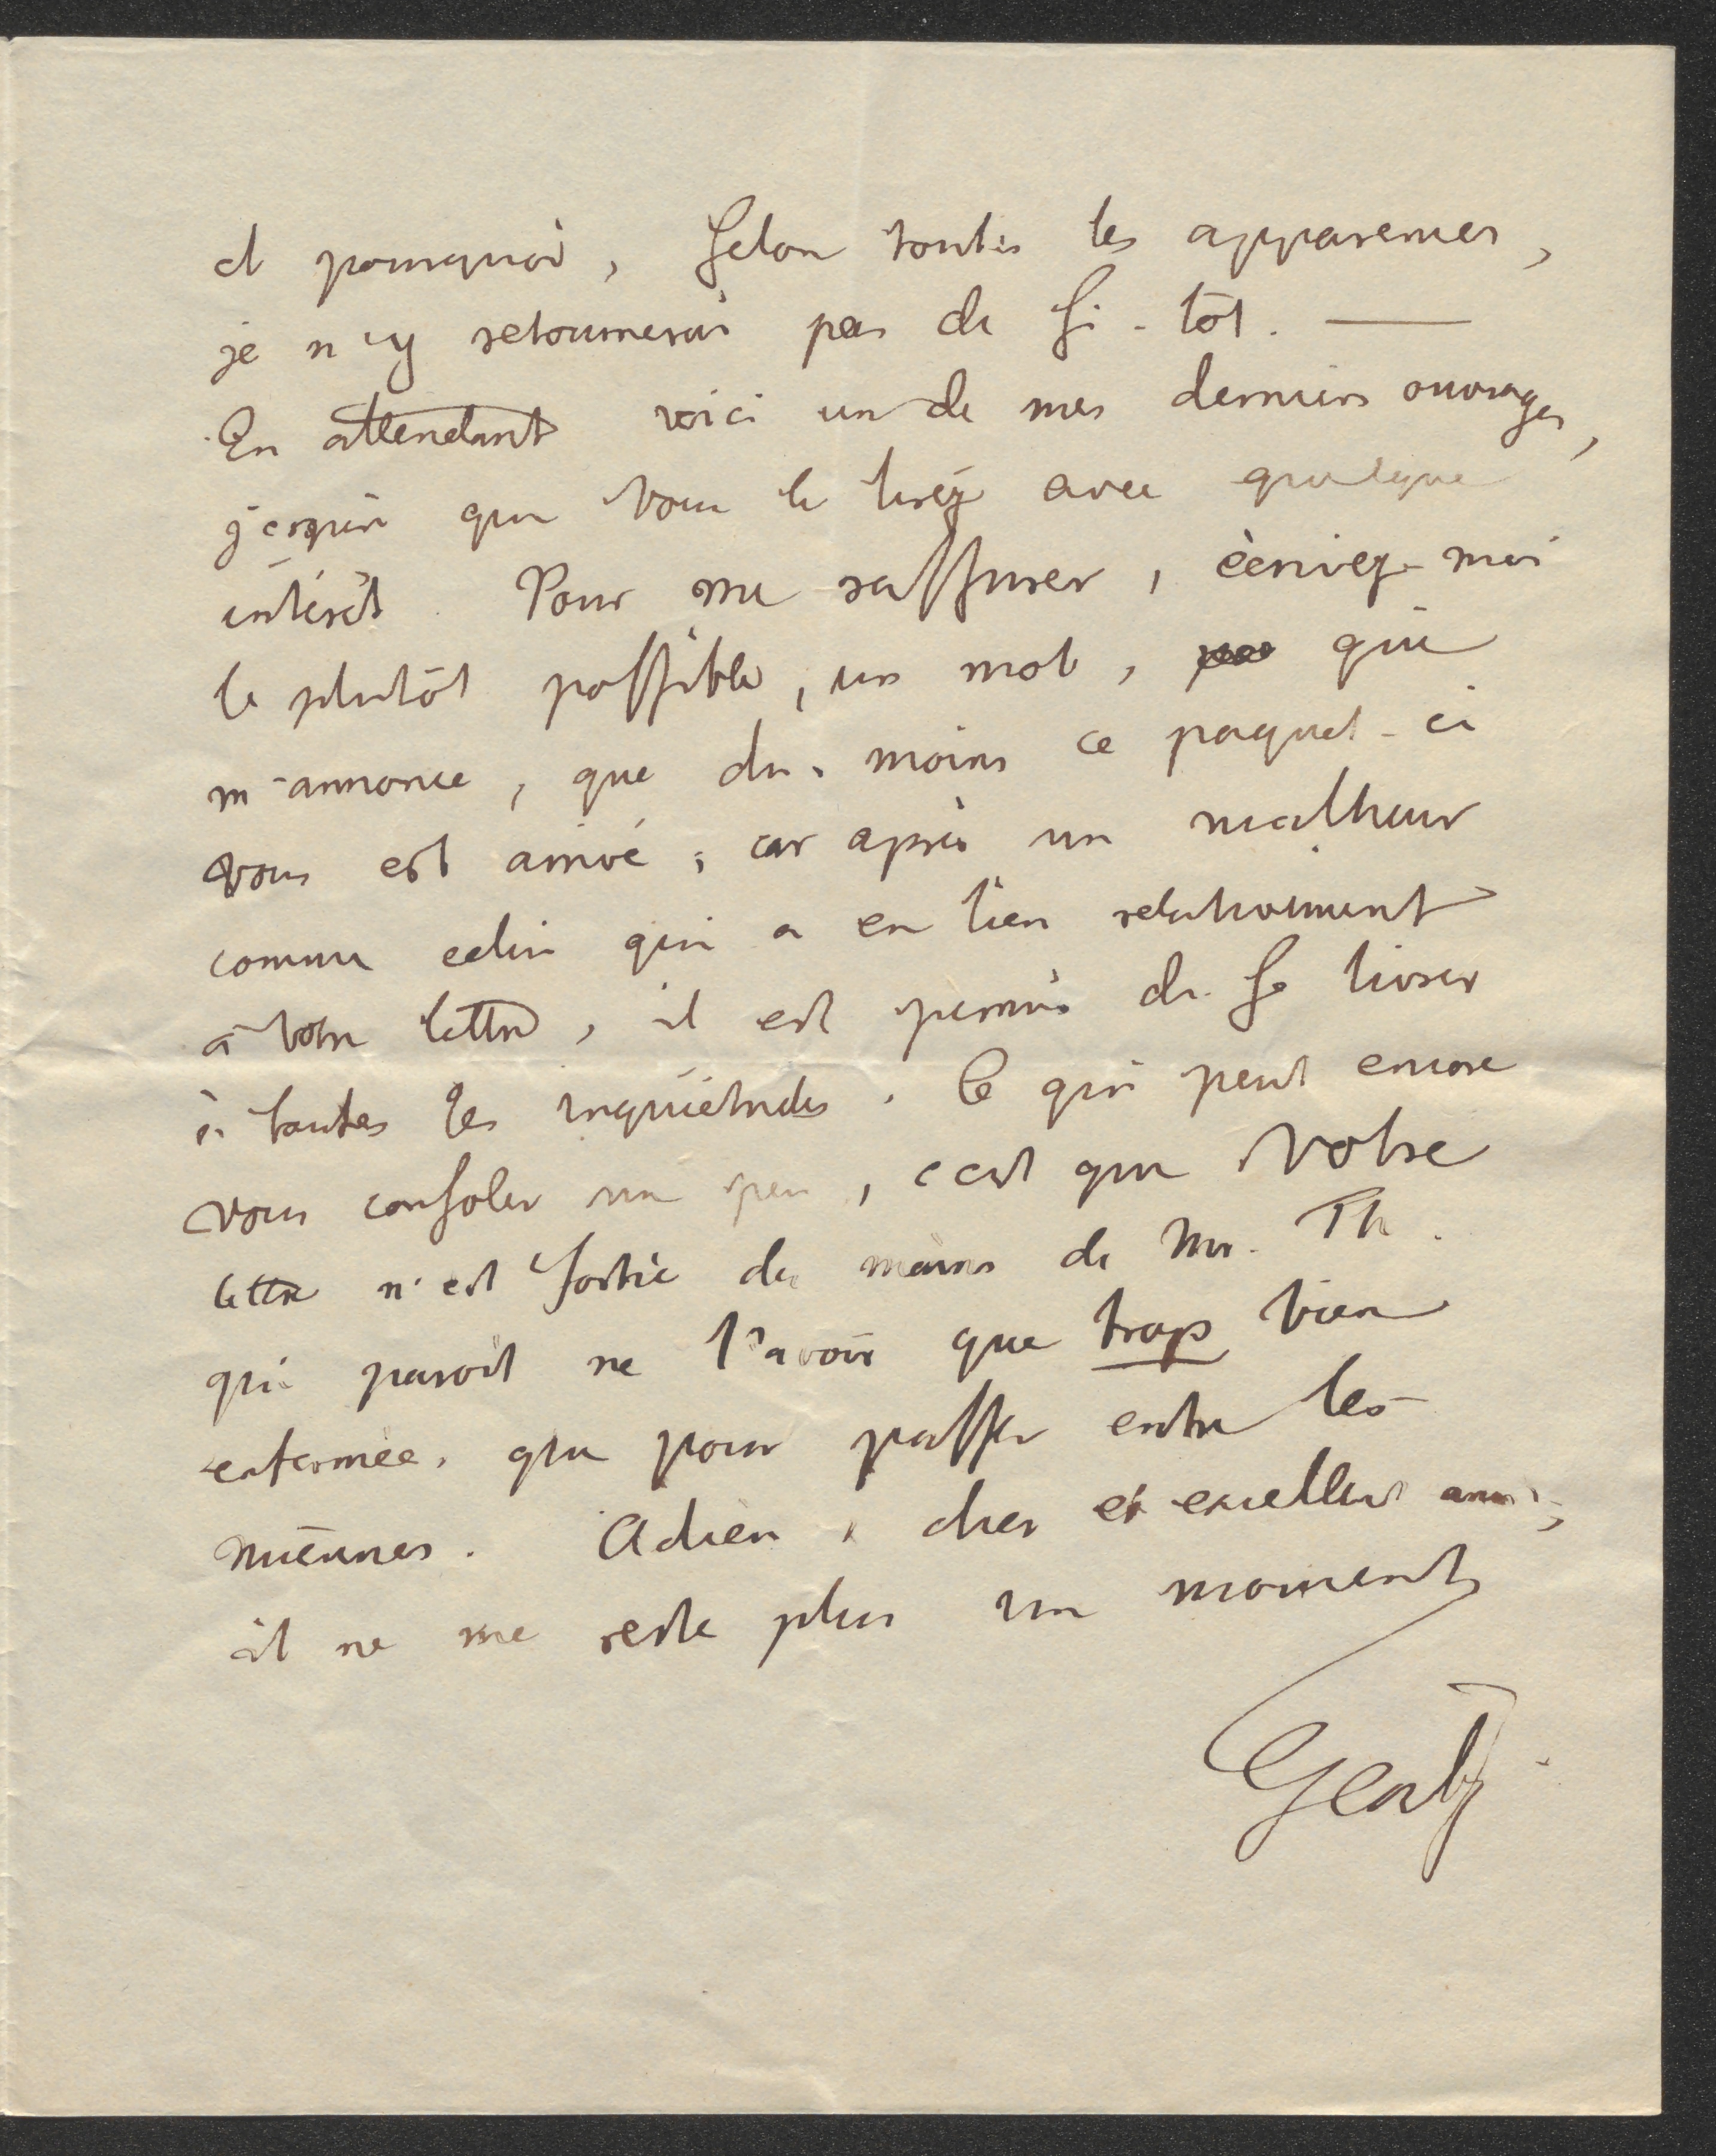 et pourquoi, selon toutes les apparences,
je n'y retournerai pas de si-tôt. —
En attendant voici un de mes derniers ouvrages,
j'espère que vous le lirez avec quelque
intérêt. Pour me rassurer, écrivez-moi
le plutôt possible, un mot, qui
m'annonce, que du moins ce paquet-ci
vous est arrivé; car après un malheur
comme celui qui a eu lieu relativement
à votre lettre, il est permis de se livrer
à toutes les inquiétudes. Ce qui peut encore
vous consoler un peu, c'est que votre
lettre n'est sortie des mains de Mr. Th.
qui paroit ne l'avoir que trop bien
enfermée, que pour passer entre les
miennes. Adieu, cher et excellent ami;
il ne me reste plus un moment
Gentz.